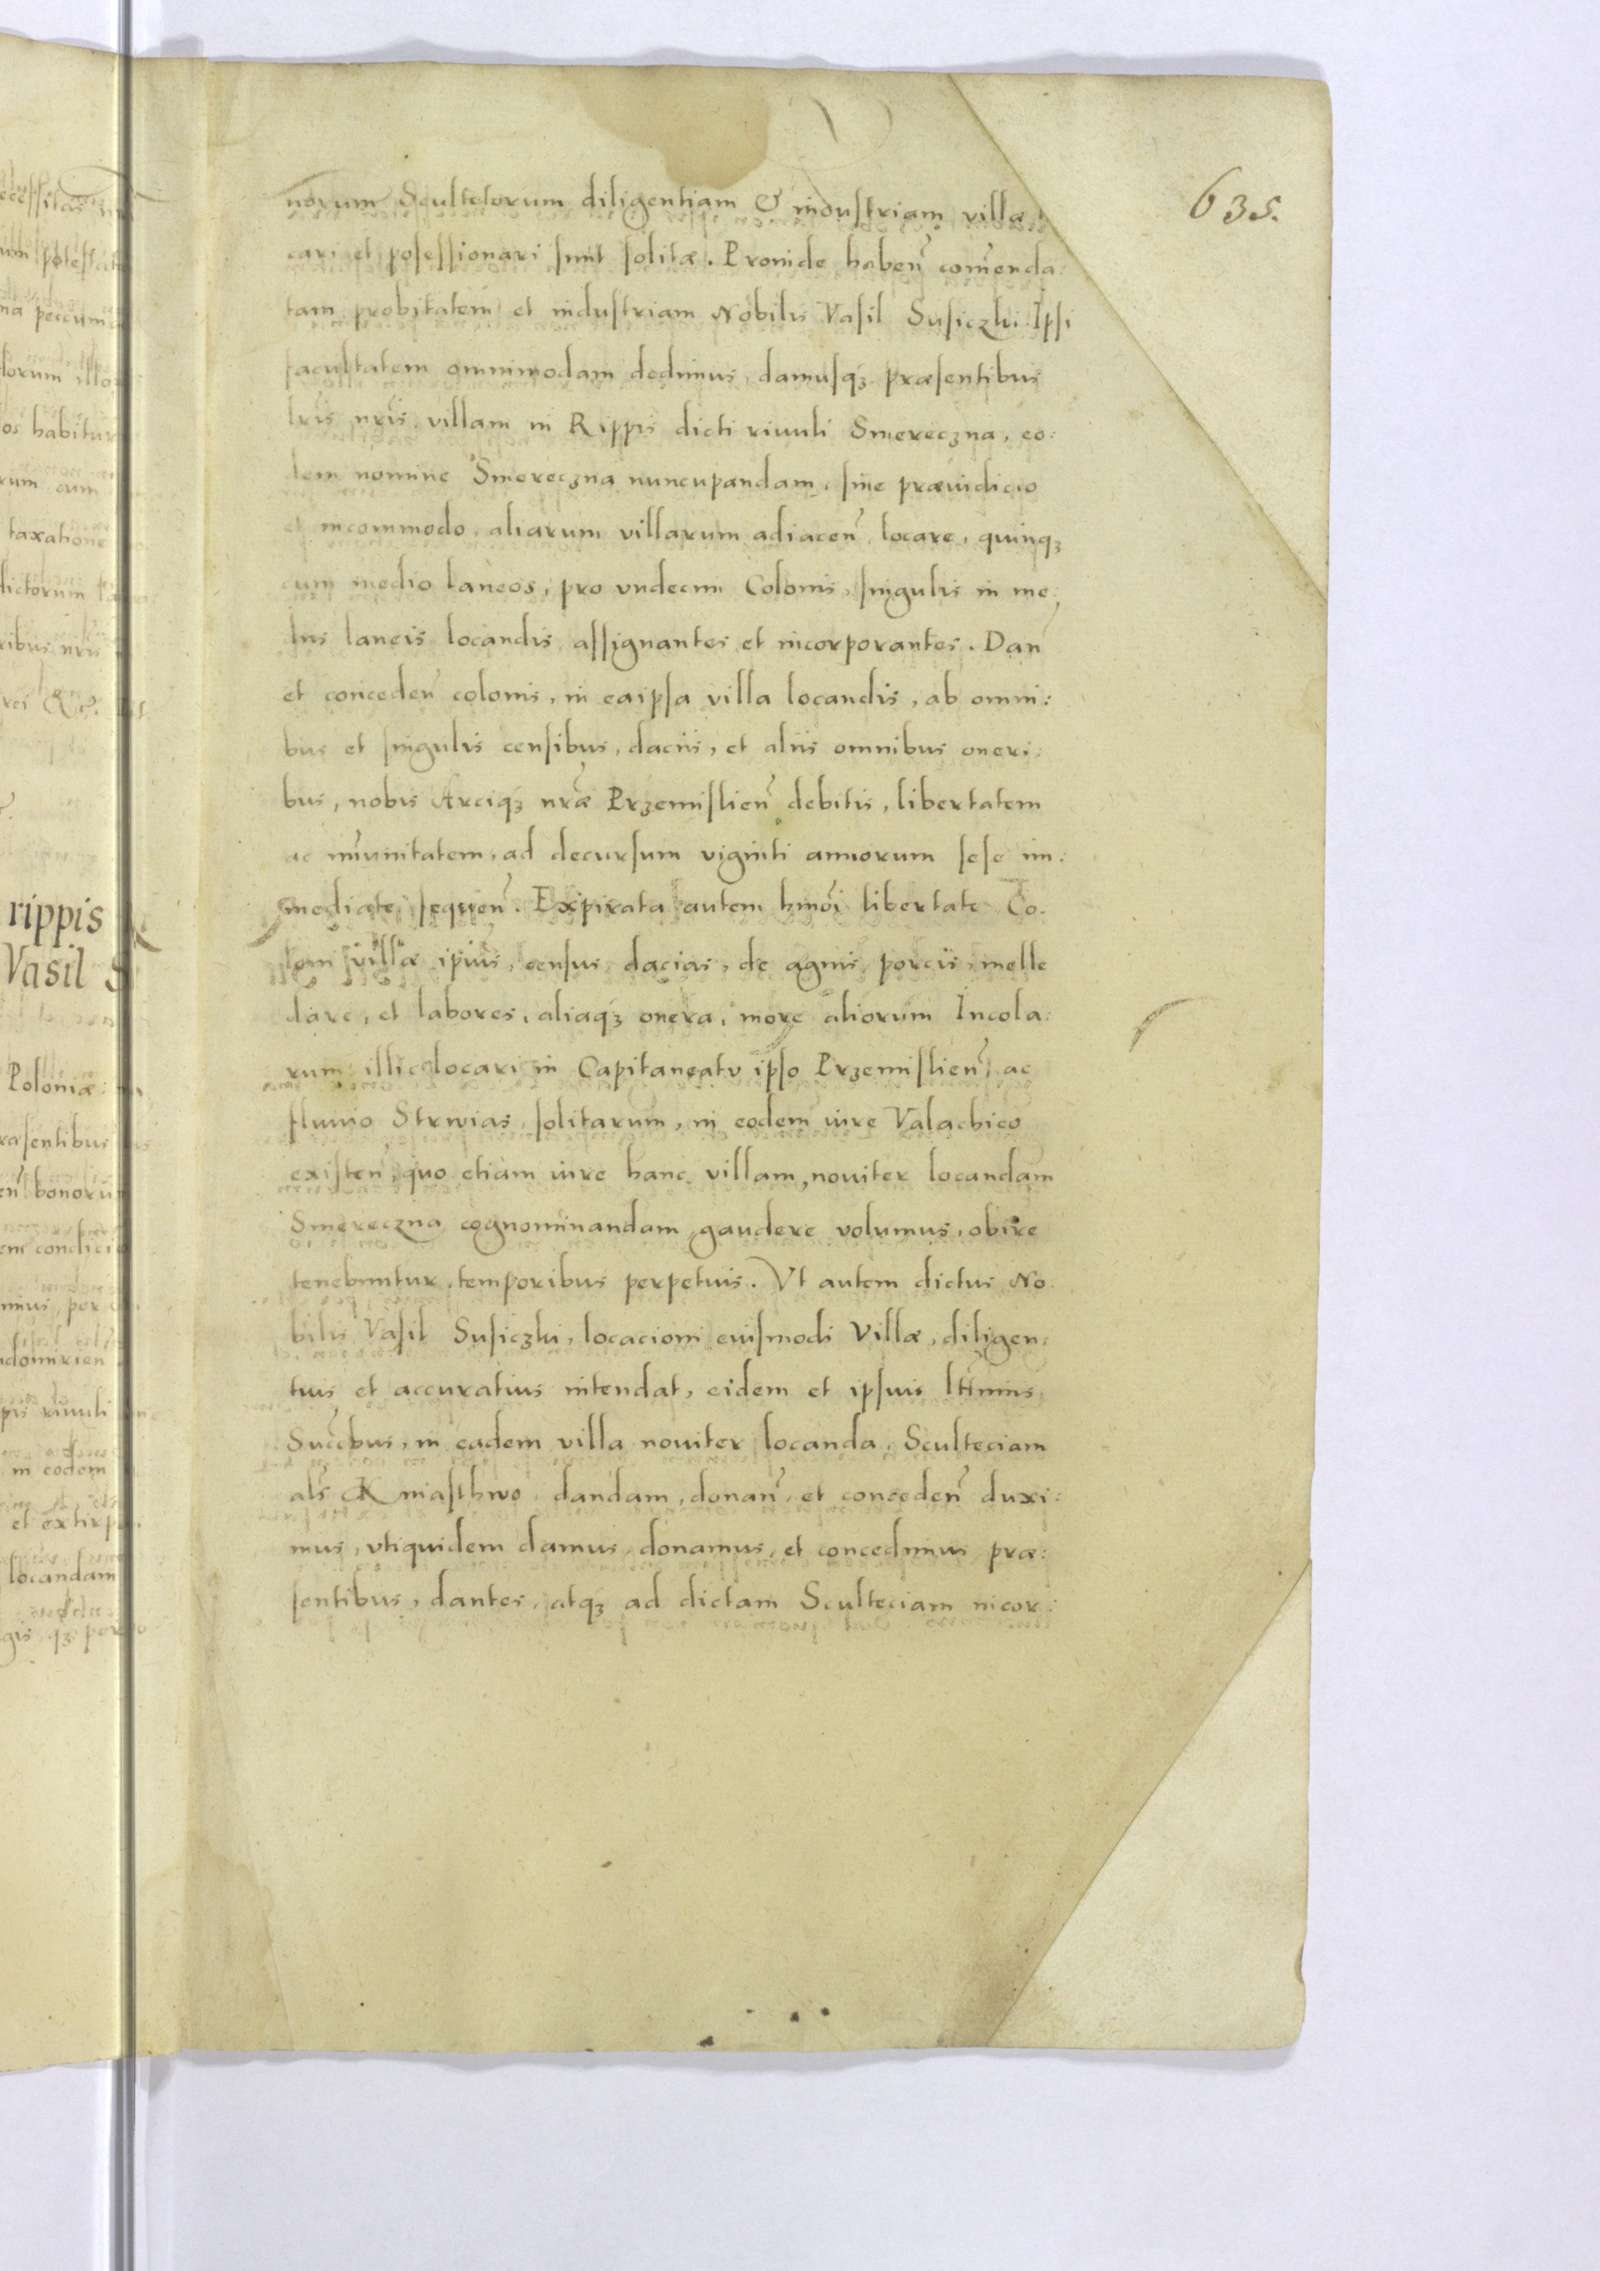 635.
norum Scultetorum diligentiam & industriam villæ
cari et posessionari sunt solitæ. Proinde haben̄ com̄enda:
tam probitatem et industriam Nobilis Vasil Susiczki Ipsi
facultatem omnimodam dedimus, damusqꝫ præsentibus
lris nris villam in Rippis dicti riuuli Smereczna, eo:
dem nomine Smereczna nuncupandam, sine præiudicio
et incommodo aliarum villarum adiacen̄ locare, quinqꝫ
cum medio laneos, pro vndecim Colonis, singulis in me:
diis laneis locandis assignantes et incorporantes. Dan̄
et conceden̄ colonis, in eaipsa villa locandis, ab omni:
bus et singulis censibus, daciis, et aliis omnibus oneri:
bus, nobis Arciqꝫ nræ Przemislien̄ debitis, libertatem
ac im̄unitatem, ad decursum viginti annorum sese im:
mediate sequen̄. Expirata autem hmōi libertate Co:
loni villæ ipius, census dacias, de agnis porcis, melle
dare, et labores, aliaqꝫ onera, more aliorum Incola:
rum illic locari in Capitaneatu ipso Przemislien̄ ac
fluuio Strwias, solitarum, in eodem iure Valachico
existen̄, quo etiam iure hanc villam, nouiter locandam
Smereczna cognominandam gaudere volumus, obire
tenebuntur, temporibus perpetuis. Vt autem dictus No
bilis Vasil Susiczki, locacioni euismodi Villæ, diligen:
tius et accuratius intendat, eidem et ipsuis ltimis
Succ̄bus, in eadem villa nouiter locanda, Sculteciam
als Kniasthwo dandam, donan̄, et conceden̄ duxi:
mus, vtiquidem damus, donamus, et concedimus præ:
sentibus, dantes, atqꝫ ad dictam Sculteciam incor:
rippis
Vasil
Poloniæ:
bonorum
riuuli
in eodem
locandam